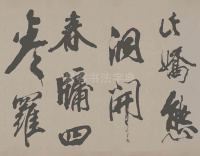 此嬌態
洞開
春牖四
卷羅